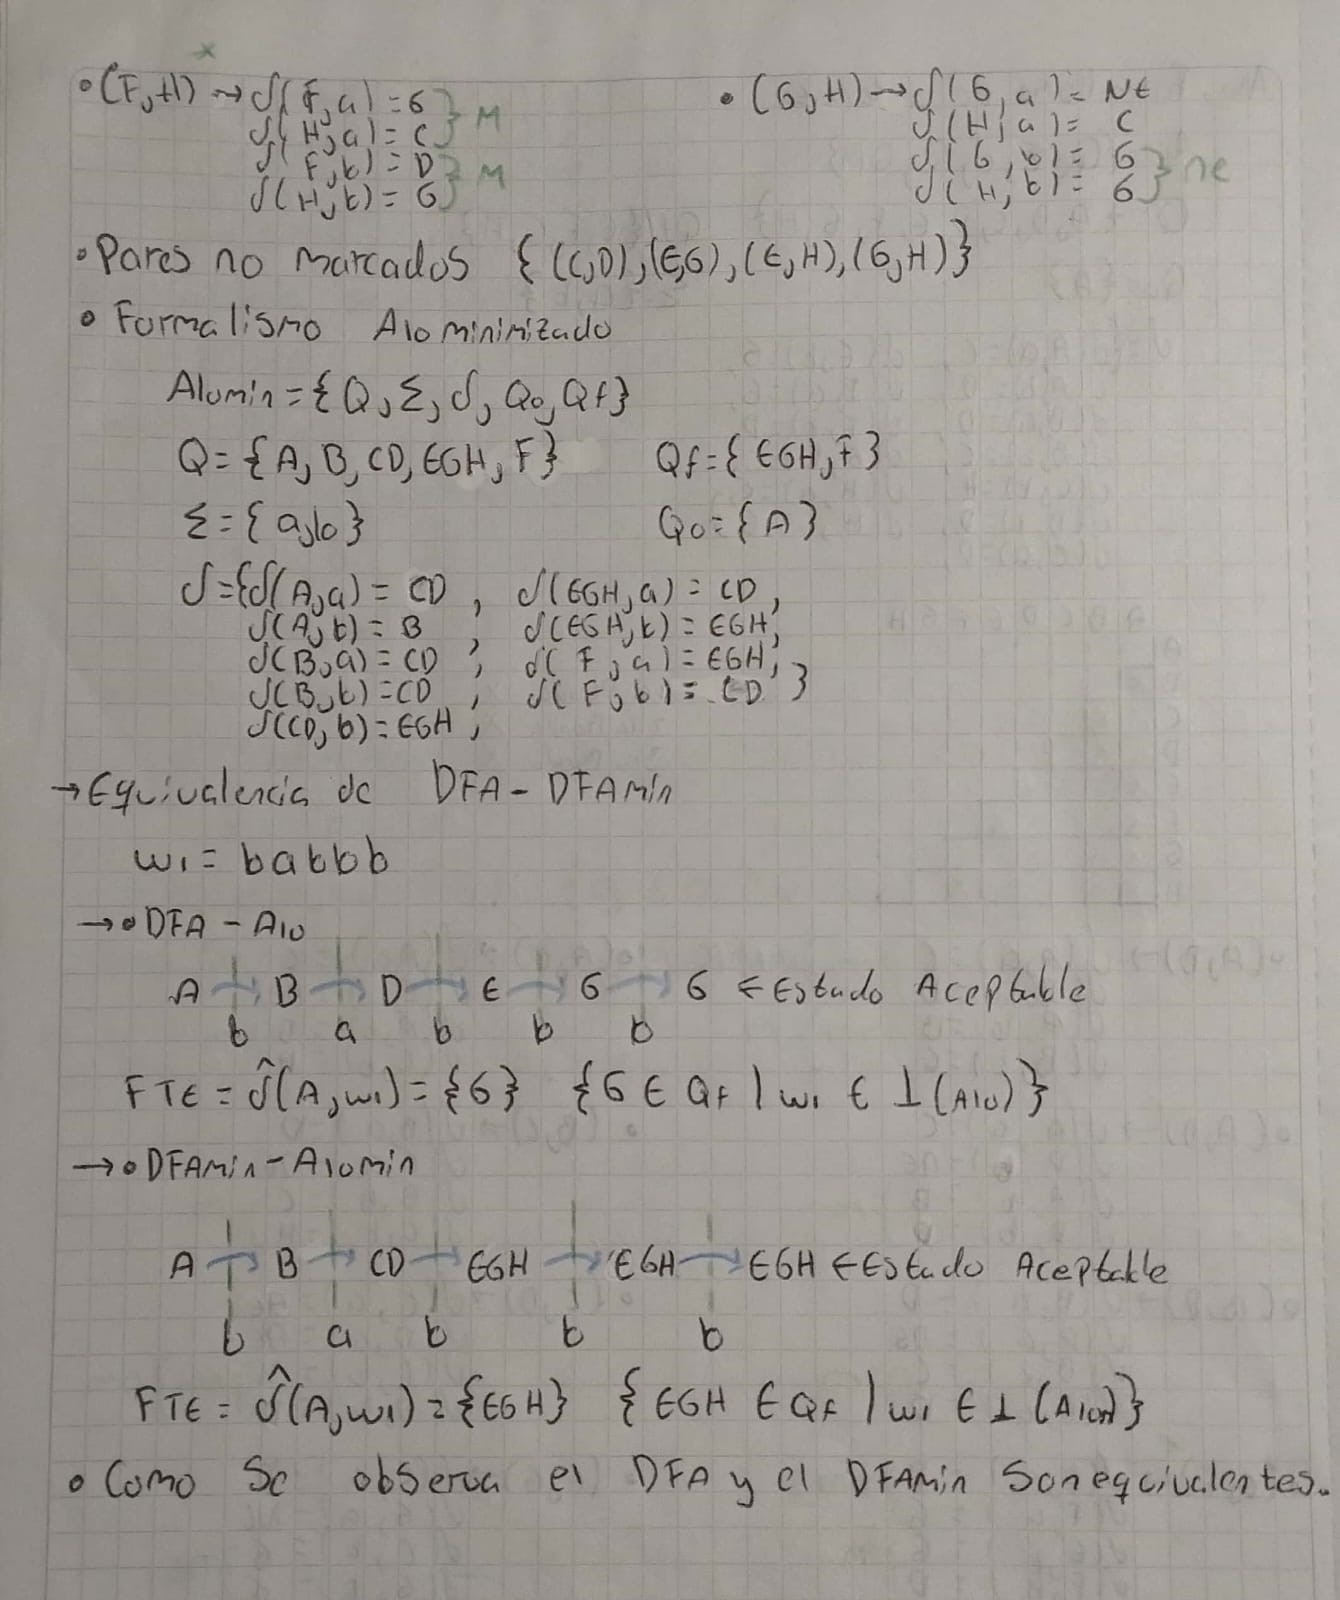 • (F,H) → δ(F,a) = G } M
δ(H,a) = C
δ(F,b) = D } M
δ(H,b) = G
• (G,H) → δ(G,a) = NE
δ(H,a) = C
δ(G,b) = G } ne
δ(H,b) = G
• Pares no marcados {(C,D),(E,G),(E,H),(G,H)}
• Formalismo A10 minimizado
A10min = {Q, Σ, δ, Q0, Qf}
Q = {A, B, CD, EGH, F} Qf = {EGH, F}
Σ = {a,b} Q0 = {A}
δ = {δ(A,a) = CD , δ(EGH,a) = CD,
δ(A,b) = B , δ(EGH,b) = EGH,
δ(B,a) = CD , δ(F,a) = EGH,
δ(B,b) = CD , δ(F,b) = CD }
δ(CD,b) = EGH ,
→ Equivalencia de DFA - DFAmin
w1 = babbb
→ • DFA - A10
A → B → D → E → G → G ← Estado Aceptable
b a b b b
FTE = δ̂(A,w1) = {G} {G ∈ Qf | w1 ∈ ⊥(A10)}
→ • DFAmin - A10min
A → B → CD → EGH → EGH → EGH ← Estado Aceptable
b a b b b
FTE = δ̂(A,w1) = {EGH} {EGH ∈ Qf | w1 ∈ ⊥(A10m)}
• Como se observa el DFA y el DFAmin son equivalentes.